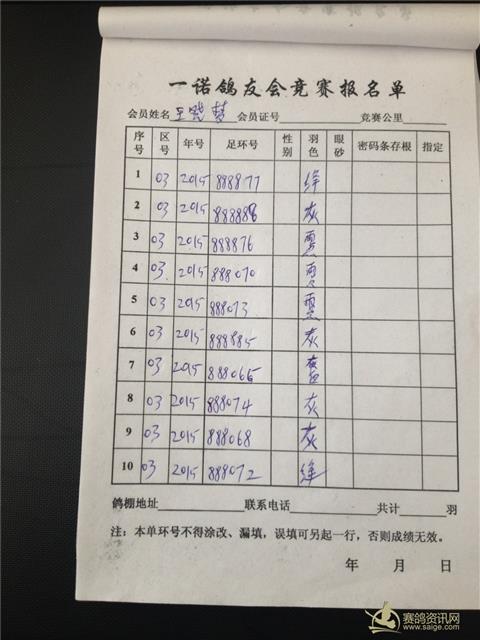 一诺鸽友会竞赛报名单
会员姓名 王晓梦 会员证号 竞赛公里
序号 区号 年号 足环号 性别 羽色 眼砂 密码条存根 指定
1 03 2015 888877 绛
2 03 2015 888888 灰
3 03 2015 888876
4 03 2015 888070
5 03 2015 888073
6 03 2015 888885 灰
7 03 2015 888066
8 03 2015 888074 灰
9 03 2015 888068 灰
10 03 2015 888072 绛
鸽棚地址 联系电话 共计 羽
注：本单环号不得涂改、漏填，误填可另起一行，否则成绩无效。
年 月 日
赛鸽资讯网
www.saige.com